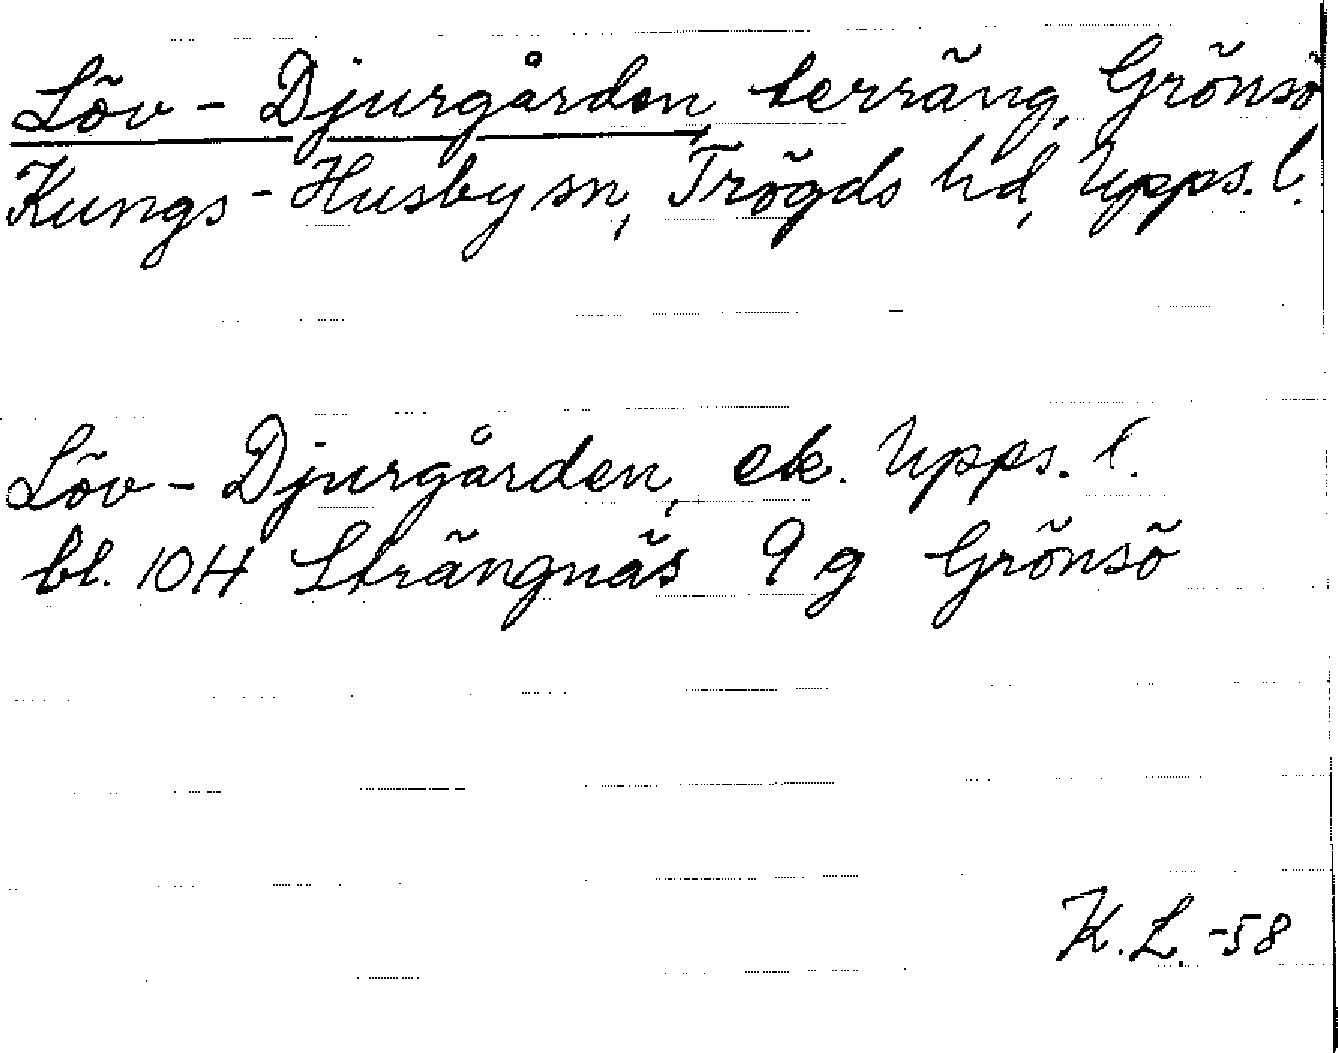 Löv-Djurgården, terräng, Grönsö
Kungs-Husby sn, Trögds hd, Upps. l.
Löv-Djurgården, ek. Upps. l.
bl. 10H Strängnäs 9 g Grönsö
K.L. -58